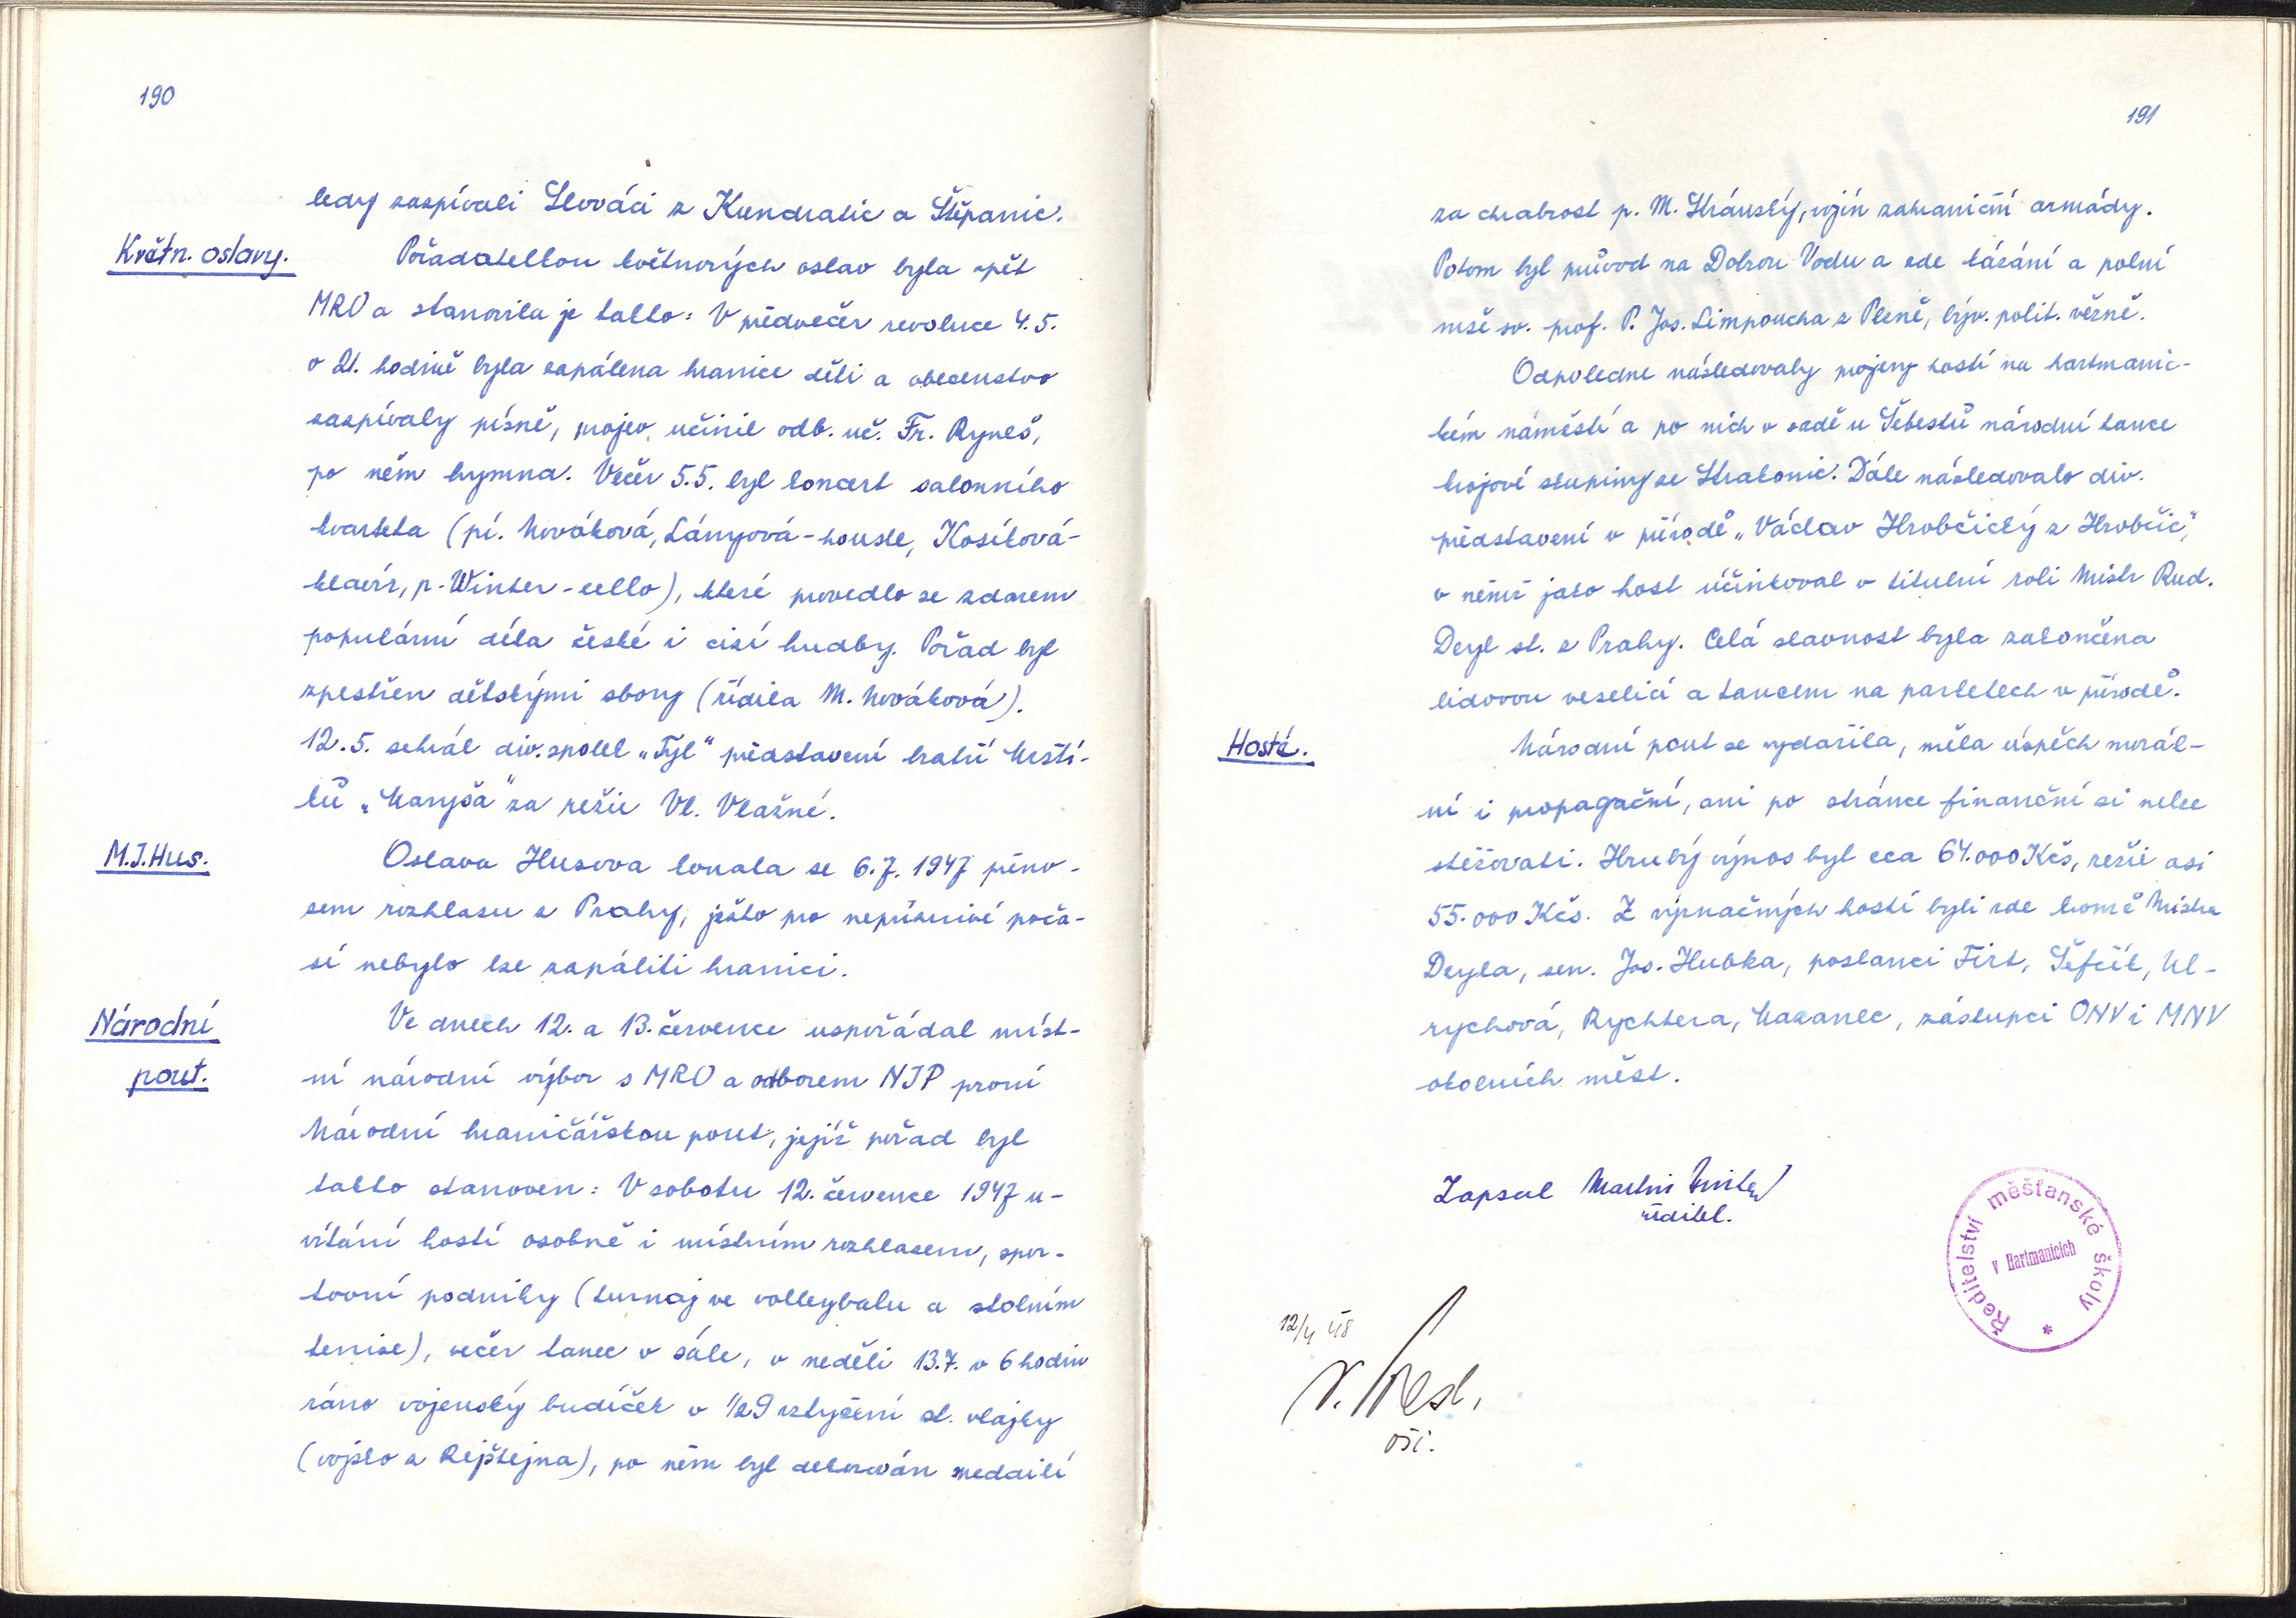 190
ledy zazpívali Slováci z Kundratic a Štěpanic.
Květn. oslavy.
Pořadatelkou květnových oslav byla opět
MRO a stanovila je takto: V předvečer revoluce 4.5.
o 21. hodině byla zapálena hranice děti a obecenstvo
zazpívaly písně, projev učinil odb. uč. Fr. Ryneš,
po něm hymna. Večer 5.5. byl koncert salonního
kvarteta (pí. Nováková, Lányová - housle, Kosíková -
klavír, p. Winter - cello), které provedlo se zdarem
populární díla české i cizí hudby. Pořad byl
zpestřen dětskými sbory (řídila M. Nováková).
12.5. sehrál div. spolek „Tyl“ představení bratří Mrští-
ků „Maryša“ za režie Vl. Vlažné.
M.J.Hus.
Oslava Husova konala se 6.7. 1947 přeno-
sem rozhlasu z Prahy, ježto pro nepříznivé poča-
sí nebylo lze zapáliti hranici.
Národní
pout.
Ve dnech 12. a 13. července uspořádal míst-
ní národní výbor s MRO a odborem NJP první
Národní hraničářskou pout, jejíž pořad byl
takto stanoven: V sobotu 12. července 1947 u-
vítání hostí osobně i místním rozhlasem, spor-
tovní podniky (turnaj ve volleybalu a stolním
tenise), večer tanec v sále, v neděli 13.7. v 6 hodin
ráno vojenský budíček v 1/2 9 vztyčení st. vlajky
(vojsko z Rejštejna), po něm byl dekorován medailí
191
za chrabrost p. M. Stránský, vojín zahraniční armády.
Potom byl průvod na Dobrou Vodu a zde kázání a polní
mše sv. prof. P. Jos. Limpoucha z Plzně, býv. polit. vězně.
Odpoledne následovaly projevy hostí na hartmanic-
kém náměstí a po nich v sadě u Šebestů národní tance
krojové skupiny ze Strakonic. Dále následovalo div.
představení v přírodě „Václav Hrobčický z Hrobčic“,
v němž jako host účinkoval v titulní roli Mistr Rud.
Deyl st. z Prahy. Celá slavnost byla zakončena
lidovou veselicí a tancem na parketech v přírodě.
Hosté.
Národní pout se vydařila, měla úspěch morál-
ní i propagační, ani po stránce finanční si nelze
stěžovati. Hrubý výnos byl cca 64.000 Kčs, režie asi
55.000 Kčs. Z význačných hostí byli zde kromě Mistra
Deyla, sen. Jos. Hubka, poslanci Firt, Šefčík, Ul-
rychová, Rychtera, Mazanec, zástupci ONV i MNV
okolních měst.
Zapsal Martin
ředitel.
Ředitelství měšťanské školy
v Hartmanicích
12/4 48
oši.